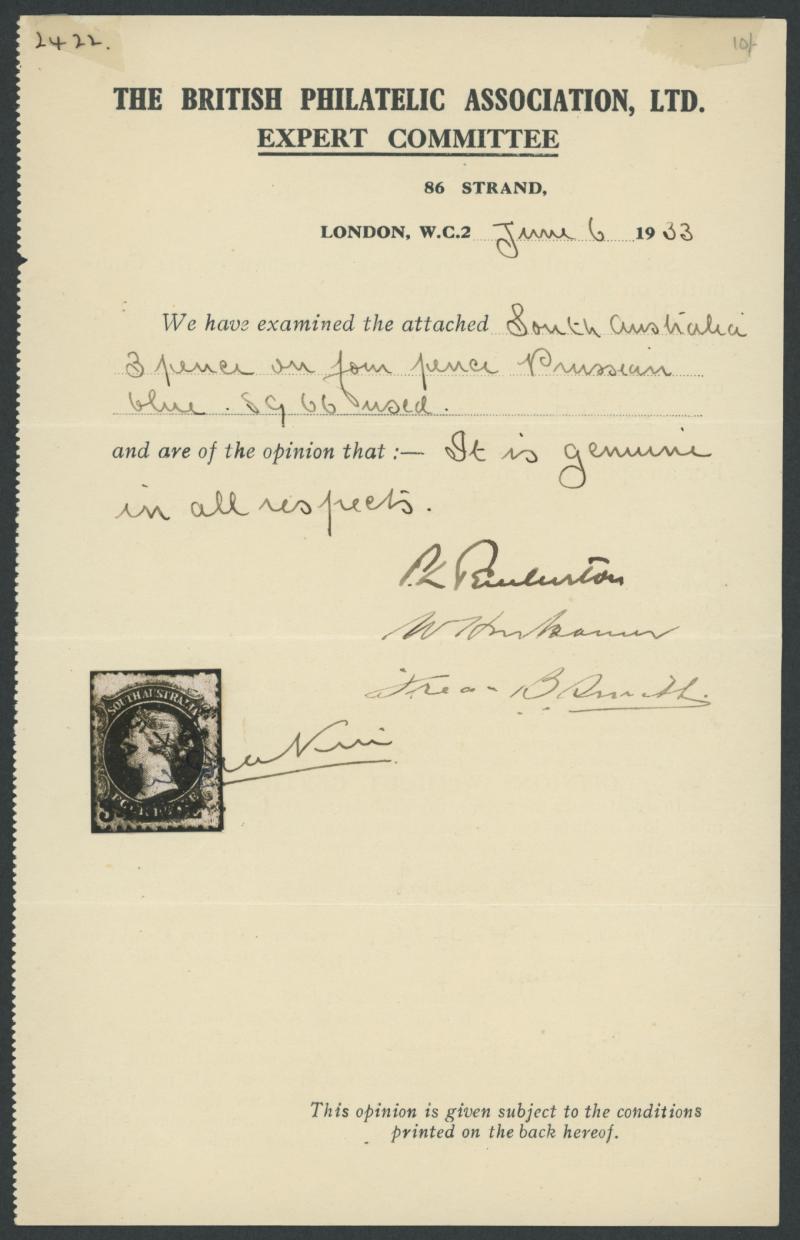 2422.
10/-
THE BRITISH PHILATELIC ASSOCIATION, LTD.
EXPERT COMMITTEE
86 STRAND,
LONDON, W.C.2 June 6 1933
We have examined the attached South Australia
3 pence on four pence Prussian
blue. SG 66 used.
and are of the opinion that :— It is genuine
in all respects.
P.L. Pemberton
Fred B Smith.
SOUTH AUSTRALIA
This opinion is given subject to the conditions
printed on the back hereof.